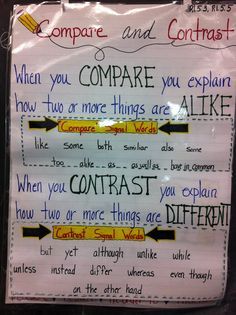 RL5.3, RL5.5
Compare and Contrast
When you COMPARE you explain
how two or more things are ALIKE
Compare Signal Words
like some both similar also same
too alike as as well as have in common
When you CONTRAST you explain
how two or more things are DIFFERENT
"Contrast" Signal Words
but yet although unlike while
unless instead differ whereas even though
on the other hand